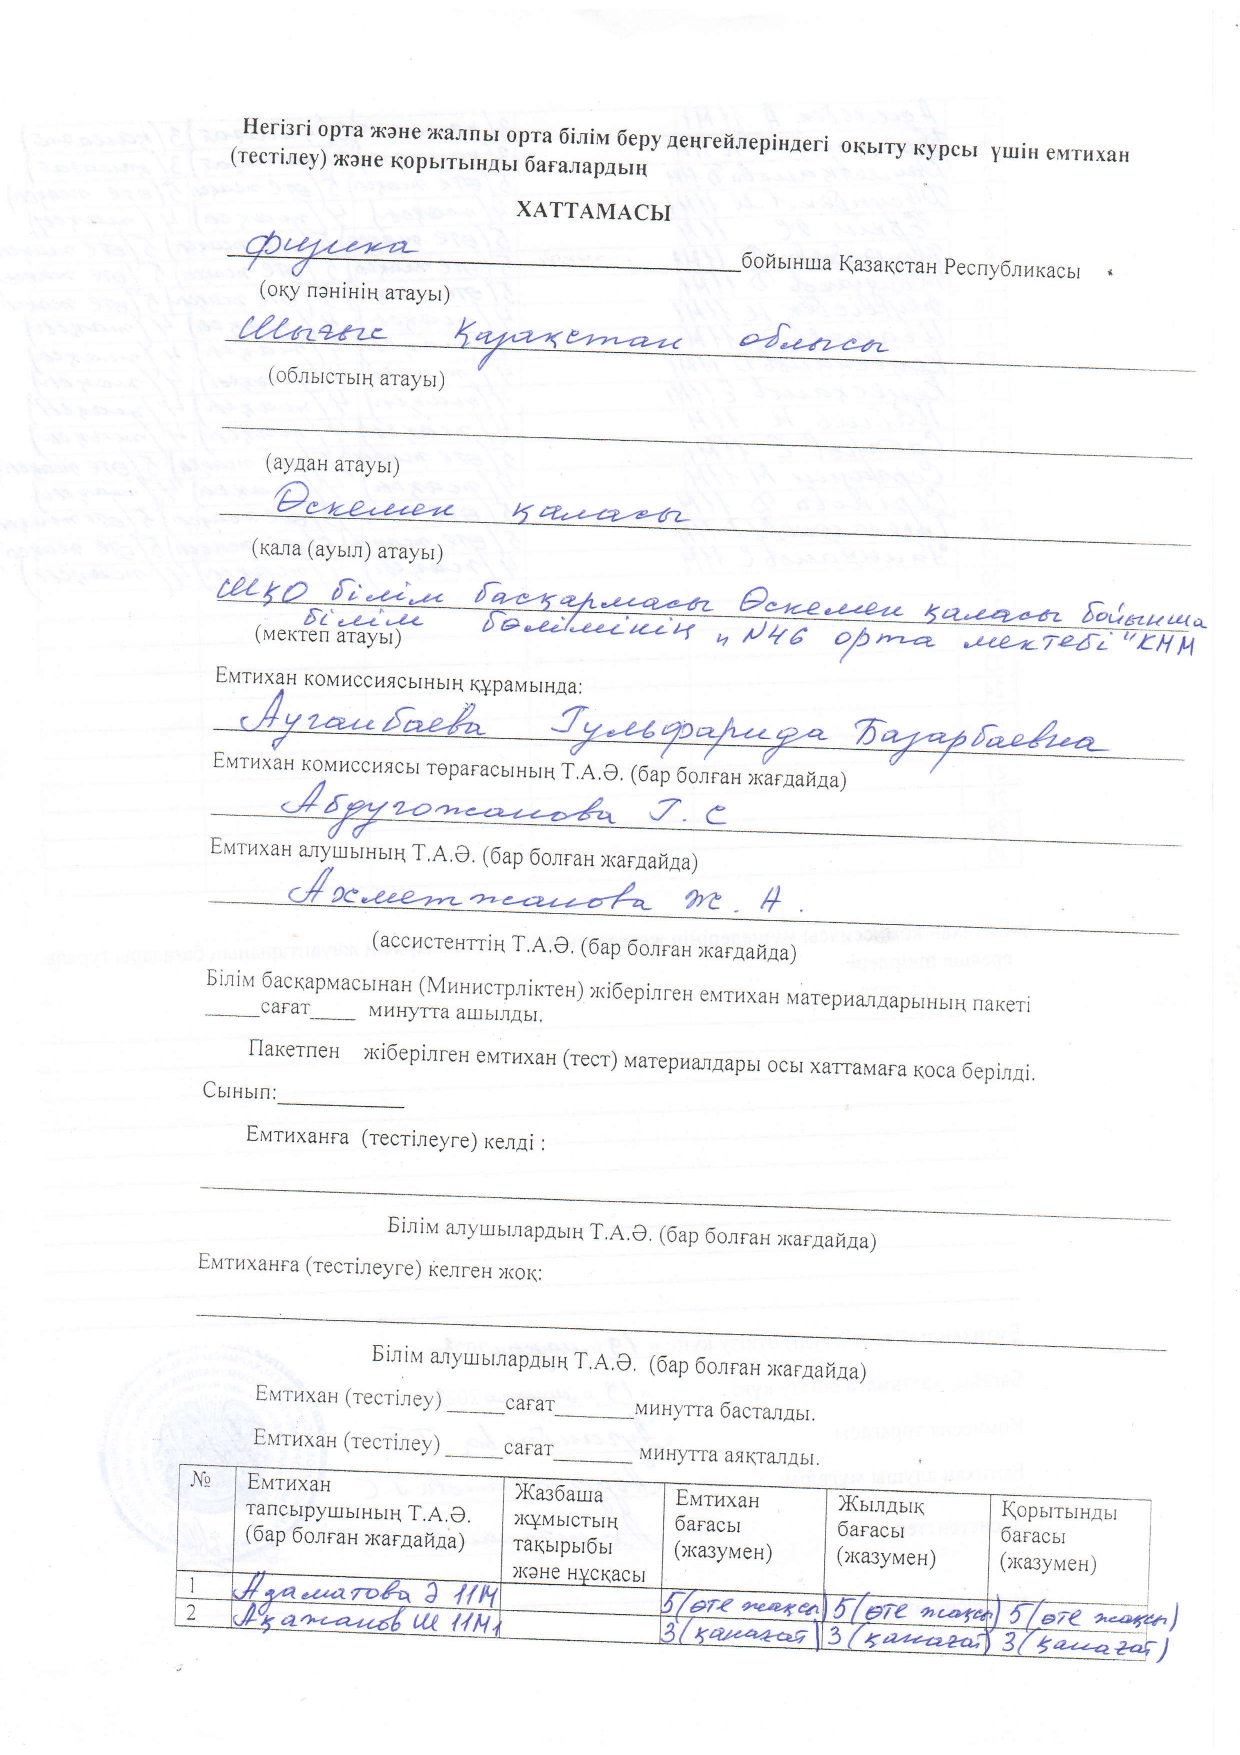 Негізгі орта және жалпы орта білім беру деңгейлеріндегі оқыту курсы үшін емтихан
(тестілеу) және қорытынды бағалардың
ХАТТАМАСЫ
физика бойынша Қазақстан Республикасы
(оқу пәнінің атауы)
Шығыс Қазақстан облысы
(облыстың атауы)
(аудан атауы)
Өскемен қаласы
(қала (ауыл) атауы)
ШҚО білім басқармасы Өскемен қаласы бойынша
білім бөлімінің "№46 орта мектебі" КММ
(мектеп атауы)
Емтихан комиссиясының құрамында:
Ауганбаева Гульфарида Базарбаевна
Емтихан комиссиясы төрағасының Т.А.Ә. (бар болған жағдайда)
Абдугожанова Г. С
Емтихан алушының Т.А.Ә. (бар болған жағдайда)
Ахметжанова Ж. А.
(ассистенттің Т.А.Ә. (бар болған жағдайда)
Білім басқармасынан (Министрліктен) жіберілген емтихан материалдарының пакеті
_____сағат____ минутта ашылды.
Пакетпен жіберілген емтихан (тест) материалдары осы хаттамаға қоса берілді.
Сынып:___________
Емтиханға (тестілеуге) келді :
Білім алушылардың Т.А.Ә. (бар болған жағдайда)
Емтиханға (тестілеуге) келген жоқ:
Білім алушылардың Т.А.Ә. (бар болған жағдайда)
Емтихан (тестілеу) _____сағат_______минутта басталды.
Емтихан (тестілеу) _____сағат_______ минутта аяқталды.
№ Емтихан тапсырушының Т.А.Ә. (бар болған жағдайда) Жазбаша жұмыстың тақырыбы және нұсқасы Емтихан бағасы (жазумен) Жылдық бағасы (жазумен) Қорытынды бағасы (жазумен)
1 Адаматова Ә 11М 5(өте жақсы) 5(өте жақсы) 5(өте жақсы)
2 Ақажанов Ш 11М1 3(қанағат) 3(қанағат) 3(қанағат)